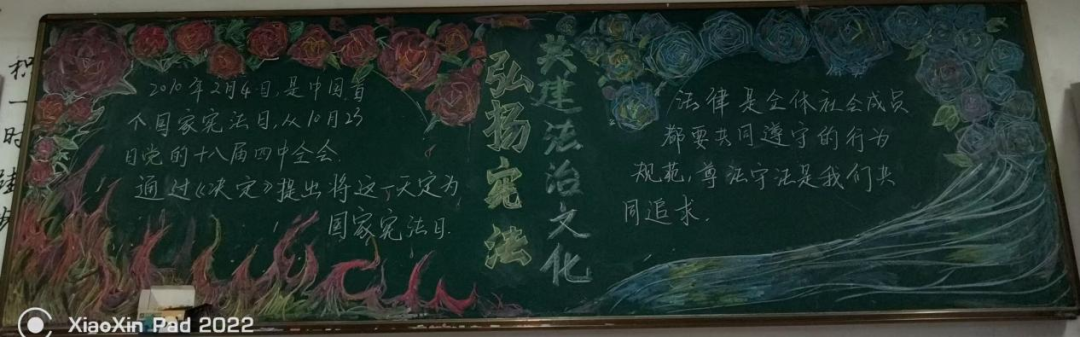 2010年2月4日,是中国首
个国家宪法日,从10月23
日党的十八届四中全会
通过《决定》提出将这一天定为
国家宪法日.
弘扬宪法
共建法治文化
法律是全体社会成员
都要共同遵守的行为
规范,尊法守法是我们共
同追求.
积
一
时
XiaoXin Pad 2022